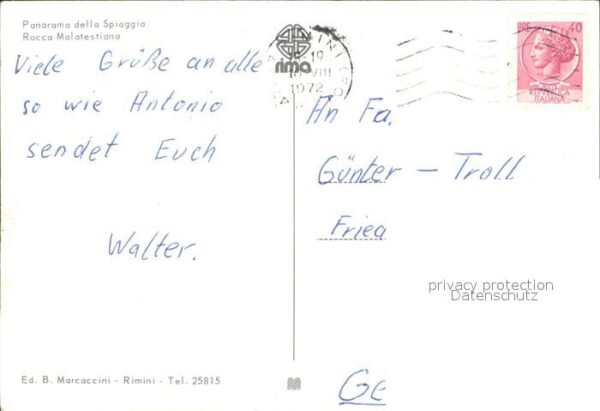 Panorama della Spiaggia
Rocca Malatestiana
Viele Grüße an alle
so wie Antonio
sendet Euch
Walter.
rima
19
VIII
1972
40
REPUBBLICA
ITALIANA
An Fa.
Günter - Troll
Fried
privacy protection
Datenschutz
Ge
Ed. B. Marcaccini - Rimini - Tel. 25815